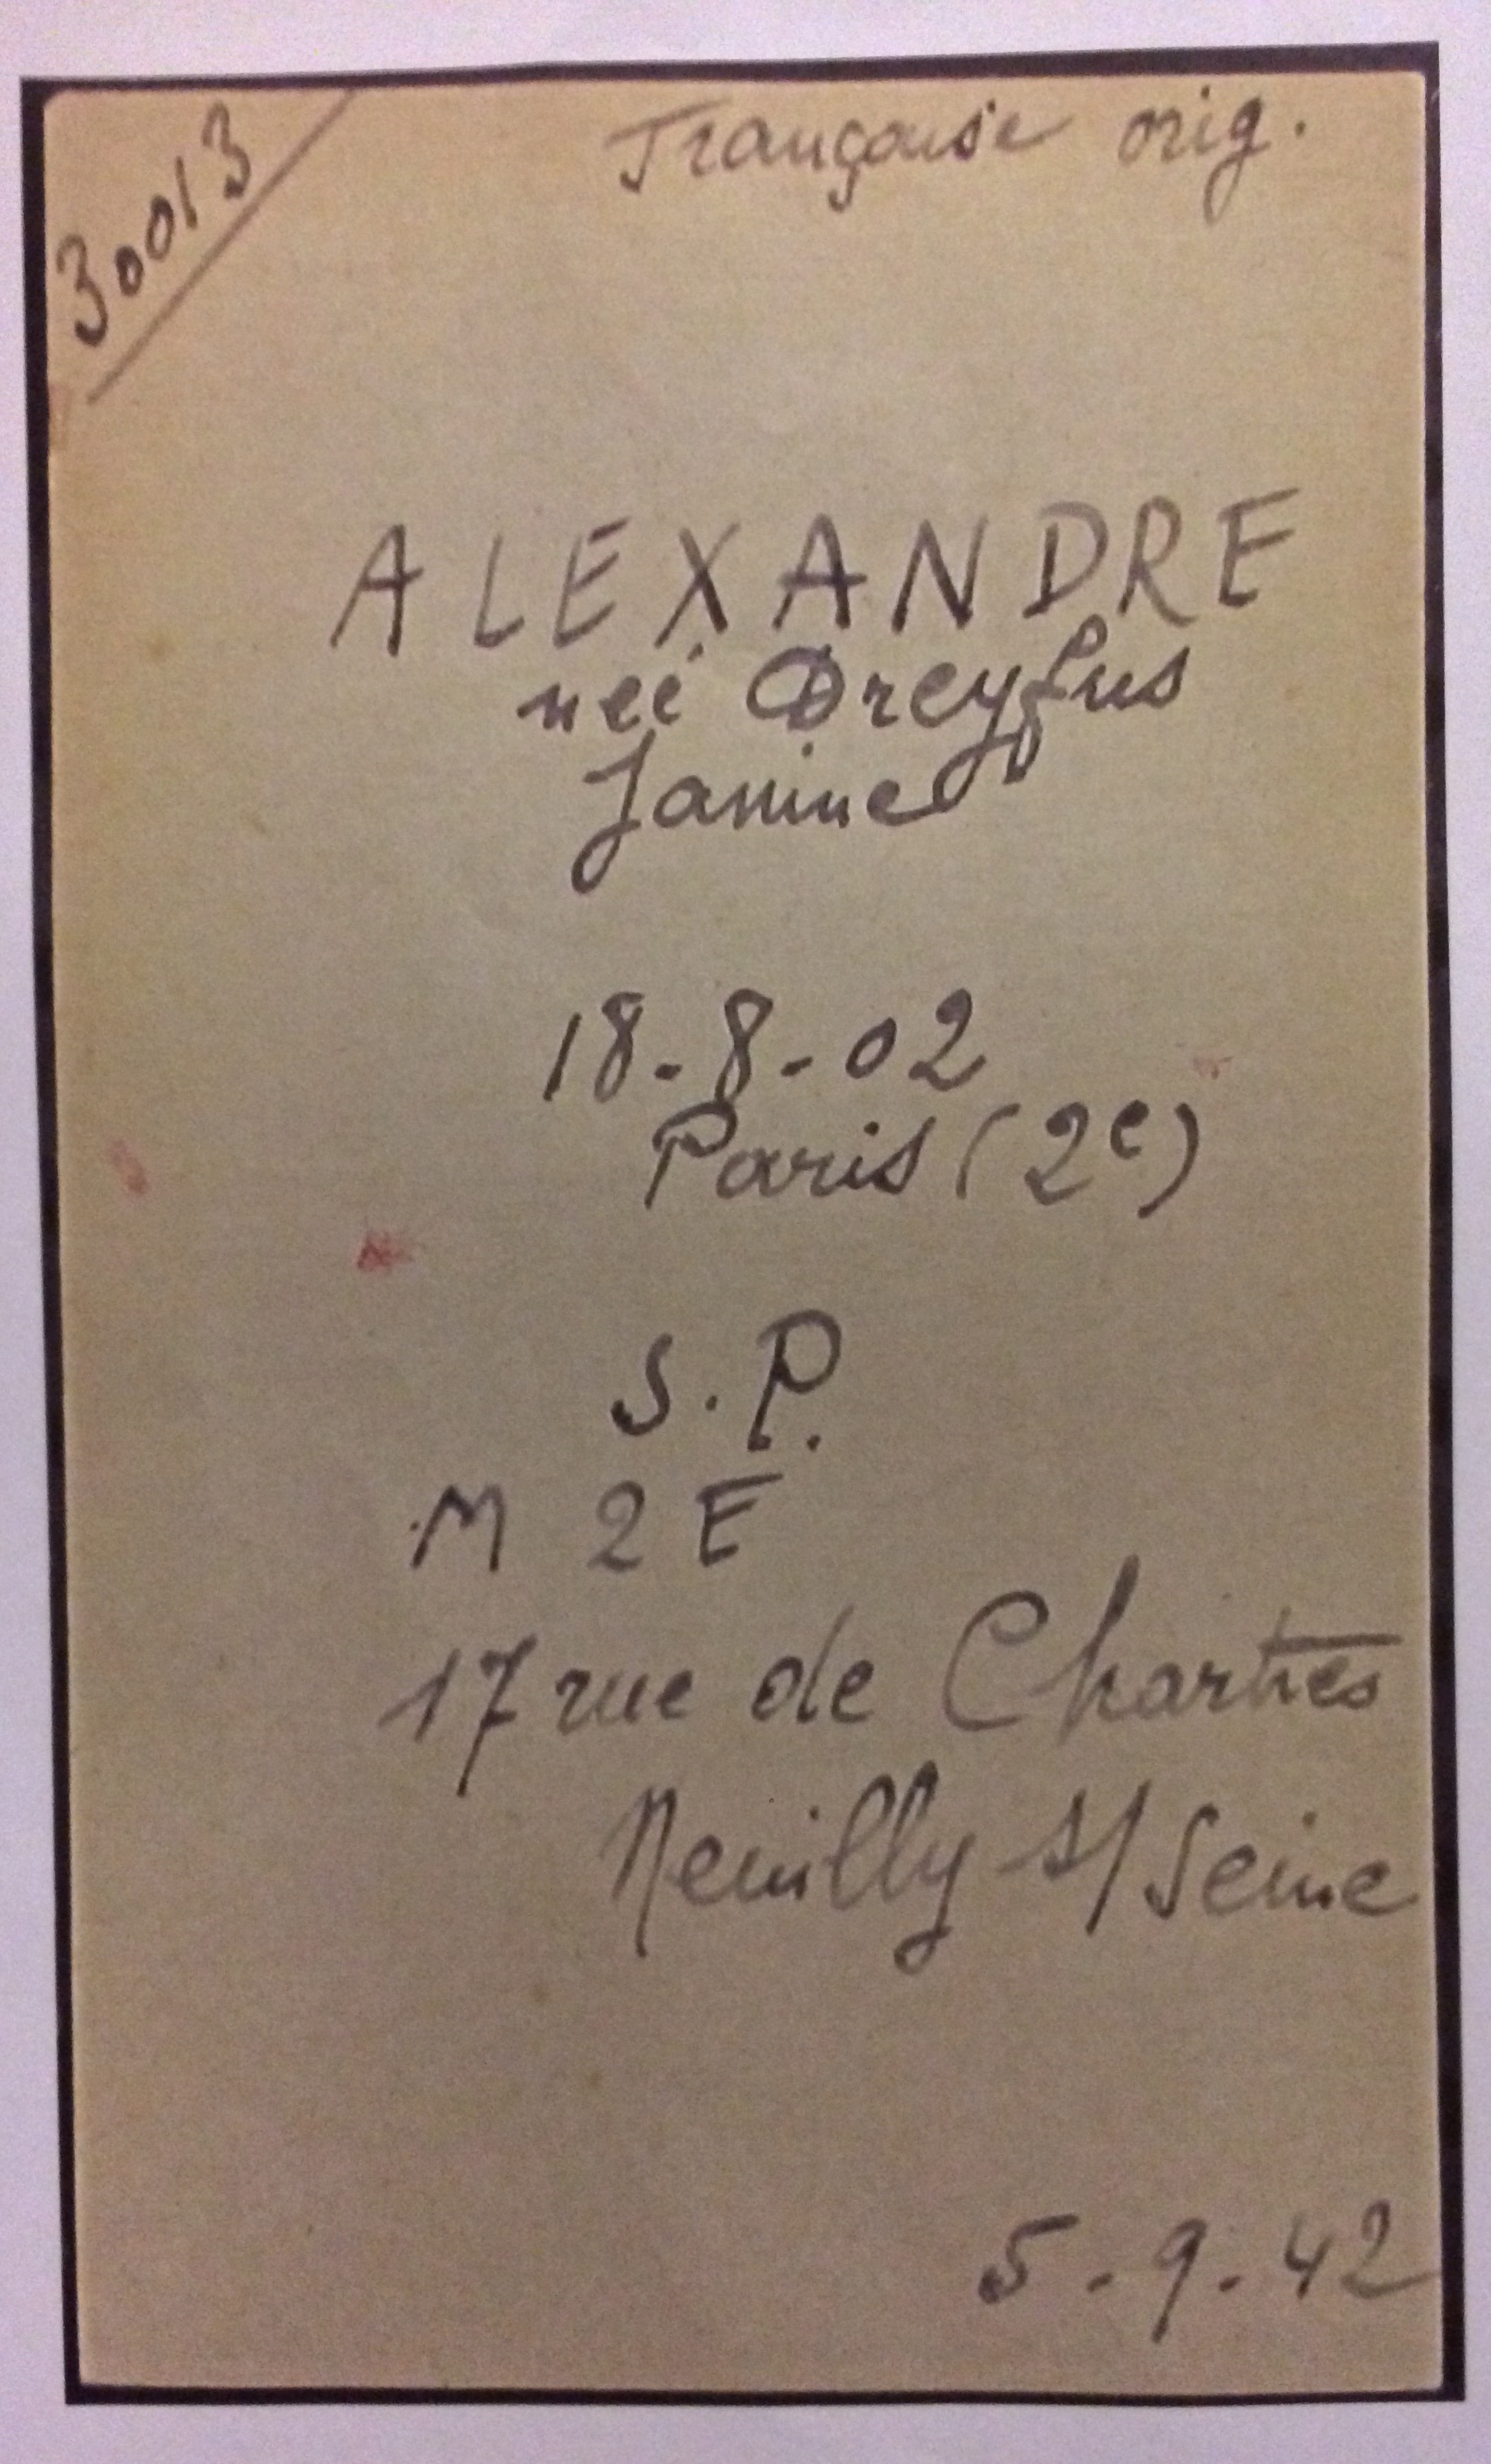 30013
Française orig.
ALEXANDRE
née Dreyfus
Janine
18-8-02
Paris (2e)
S.P.
M 2E
17 rue de Chartres
Neuilly s/Seine
5-9-42